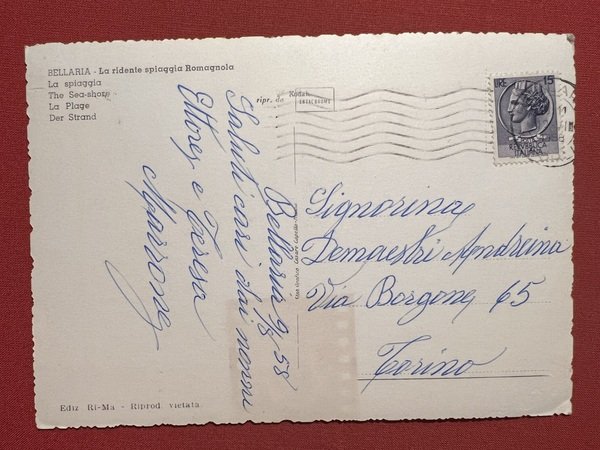 BELLARIA - La ridente spiaggia Romagnola
La spiaggia
The Sea-shore
La Plage
Der Strand
ripr. da Kodak
EKTACHROME
LIRE 15
Bellaria 9/8 58
Saluti cari dai nonni
Ettore e Teresa
Signorina
Demaestri Andreina
Via Borgone 65
Torino
Ediz. Ri-Ma - Riprod. vietata.